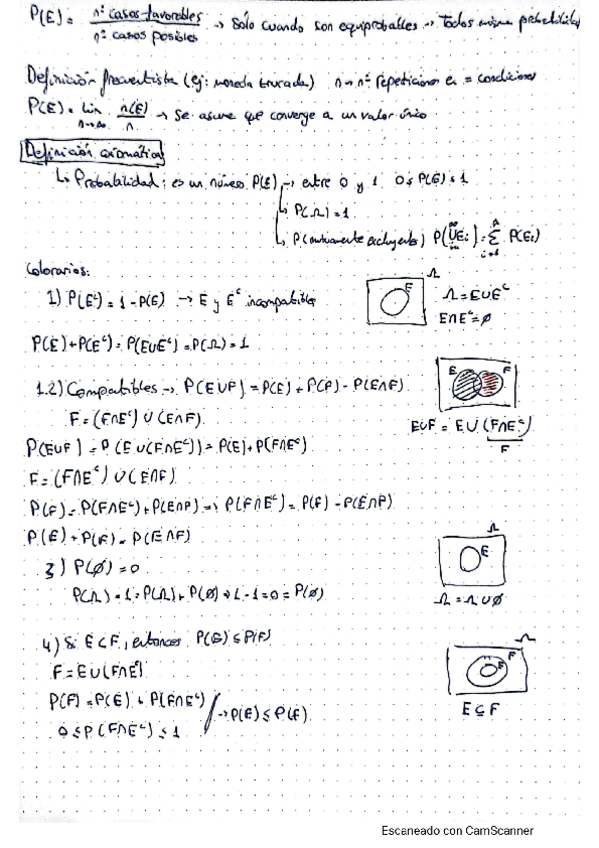 P(E) = nº casos favorables / nº casos posibles → Sólo cuando son equiprobables → Todos misma probabilidad
Definición frecuentista (ej: moneda trucada) n → nº repeticiones en = condiciones
P(E) = lim n→∞ n(E)/n → Se asume que converge a un valor único
Definición axiomática
↳ Probabilidad: es un número P(E) → entre 0 y 1 0 ≤ P(E) ≤ 1
↳ P(Ω) = 1
↳ P(mutuamente excluyentes) P(∪Ei) = Σ P(Ei)
Colorarios:
1) P(Eᶜ) = 1 - P(E) → E y Eᶜ incompatibles
E Ω
Ω = E∪Eᶜ
E∩Eᶜ = ∅
P(E) + P(Eᶜ) = P(E∪Eᶜ) = P(Ω) = 1
1.2) Compatibles → P(E∪F) = P(E) + P(F) - P(E∩F)
E F
F = (F∩Eᶜ) ∪ (E∩F)
E∪F = E∪(F∩Eᶜ)
F
P(E∪F) = P(E∪(F∩Eᶜ)) = P(E) + P(F∩Eᶜ)
F = (F∩Eᶜ) ∪ (E∩F)
P(F) = P(F∩Eᶜ) + P(E∩F) => P(F∩Eᶜ) = P(F) - P(E∩F)
P(E) + P(F) - P(E∩F)
3) P(∅) = 0
E Ω
P(Ω) = 1 = P(Ω) + P(∅) → 1 - 1 = 0 = P(∅)
Ω = Ω∪∅
4) Si E⊂F, entonces P(E) ≤ P(F)
F = E∪(F∩Eᶜ)
E F Ω
P(F) = P(E) + P(F∩Eᶜ)
→ P(E) ≤ P(F)
0 ≤ P(F∩Eᶜ) ≤ 1
E ⊆ F
Escaneado con CamScanner